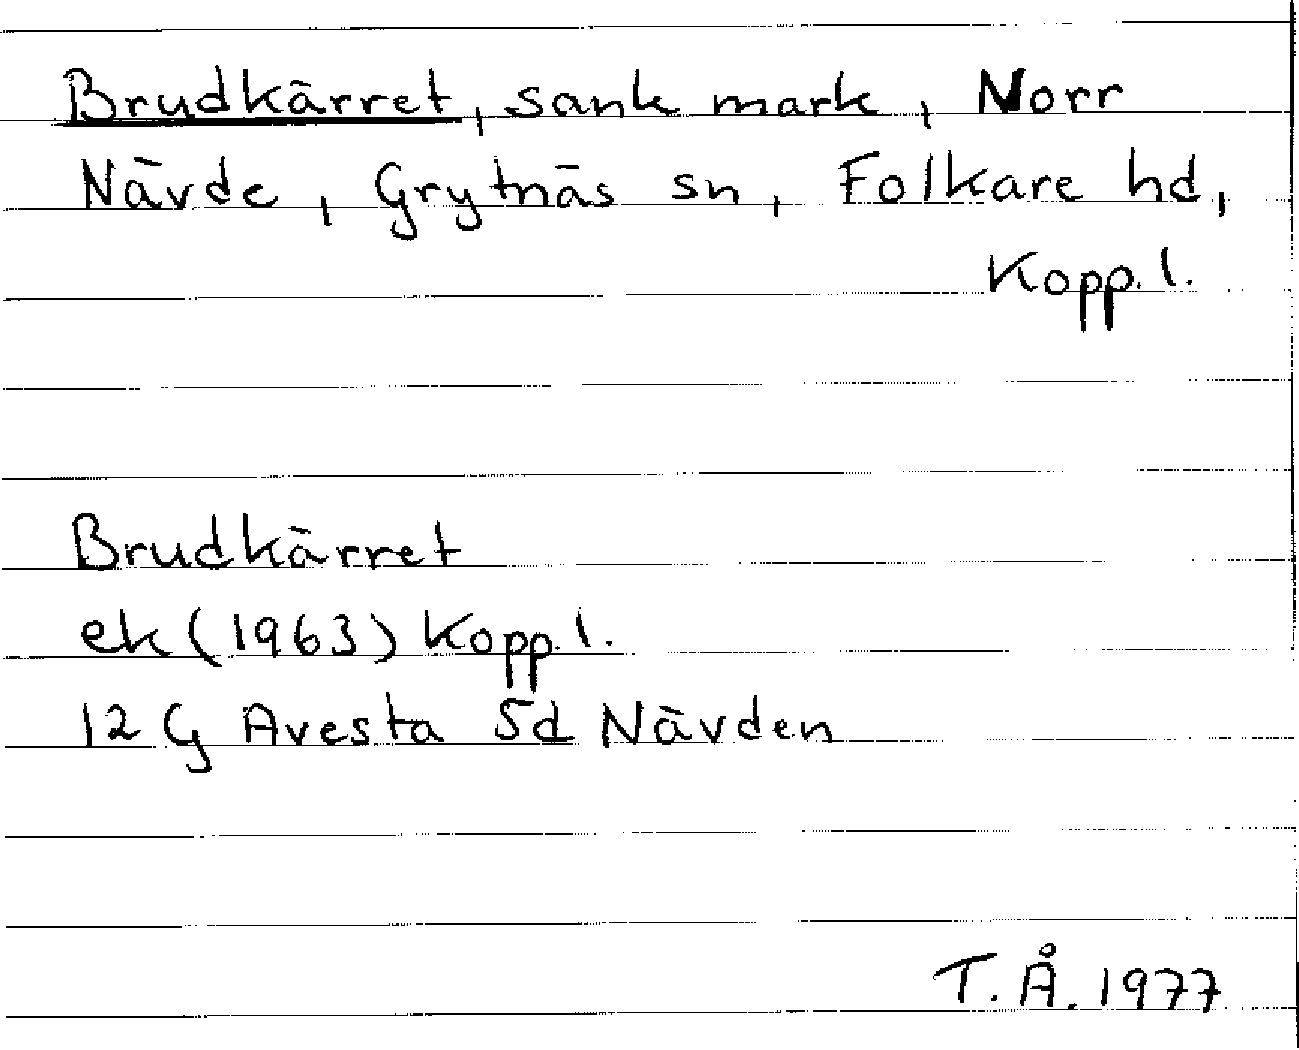 Brudkärret, sank mark, Norr
Nävde, Grytnäs sn, Folkare hd,
Kopp.l.
Brudkärret
ek (1963) Kopp.l.
12 G Avesta 5d Nävden
T.Å. 1977